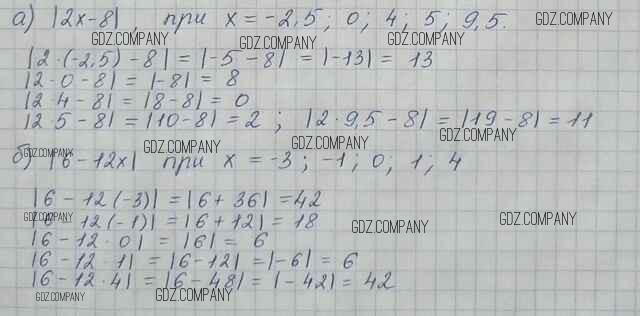 а) |2x-8|, при x = -2,5; 0; 4; 5; 9,5. GDZ.COMPANY
GDZ.COMPANY GDZ.COMPANY GDZ.COMPANY
|2·(-2,5) - 8| = |-5 - 8| = |-13| = 13
|2·0 - 8| = |-8| = 8
|2·4 - 8| = |8 - 8| = 0
|2·5 - 8| = |10 - 8| = 2; |2·9,5 - 8| = |19 - 8| = 11
GDZ.COMPANY GDZ.COMPANY GDZ.COMPANY GDZ.COMPANY
б) |6 - 12x| при x = -3; -1; 0; 1; 4
|6 - 12(-3)| = |6 + 36| = 42
GDZ.COMPANY GDZ.COMPANY GDZ.COMPANY
|6 - 12(-1)| = |6 + 12| = 18
|6 - 12·0| = |6| = 6
|6 - 12·1| = |6 - 12| = |-6| = 6
|6 - 12·4| = |6 - 48| = |-42| = 42
GDZ.COMPANY GDZ.COMPANY